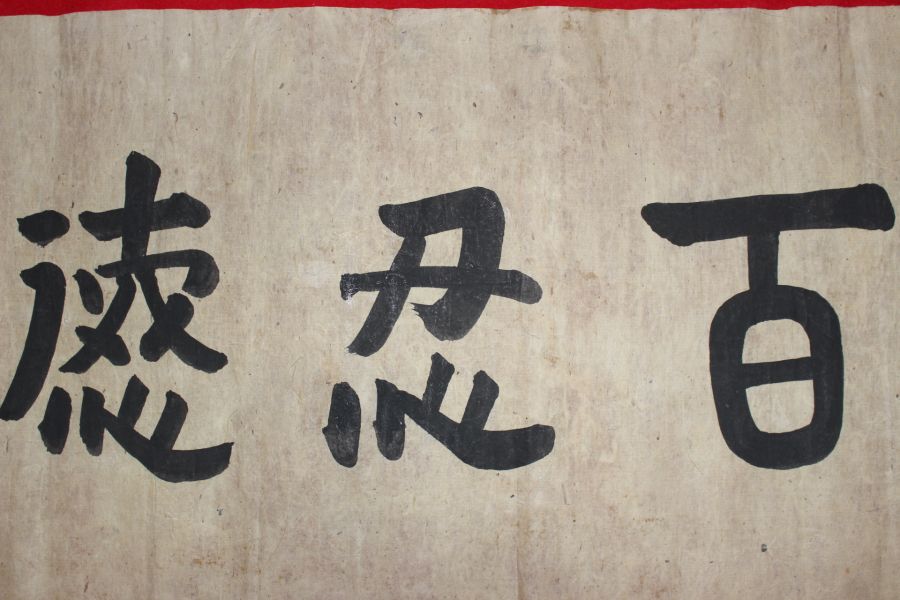 百忍德